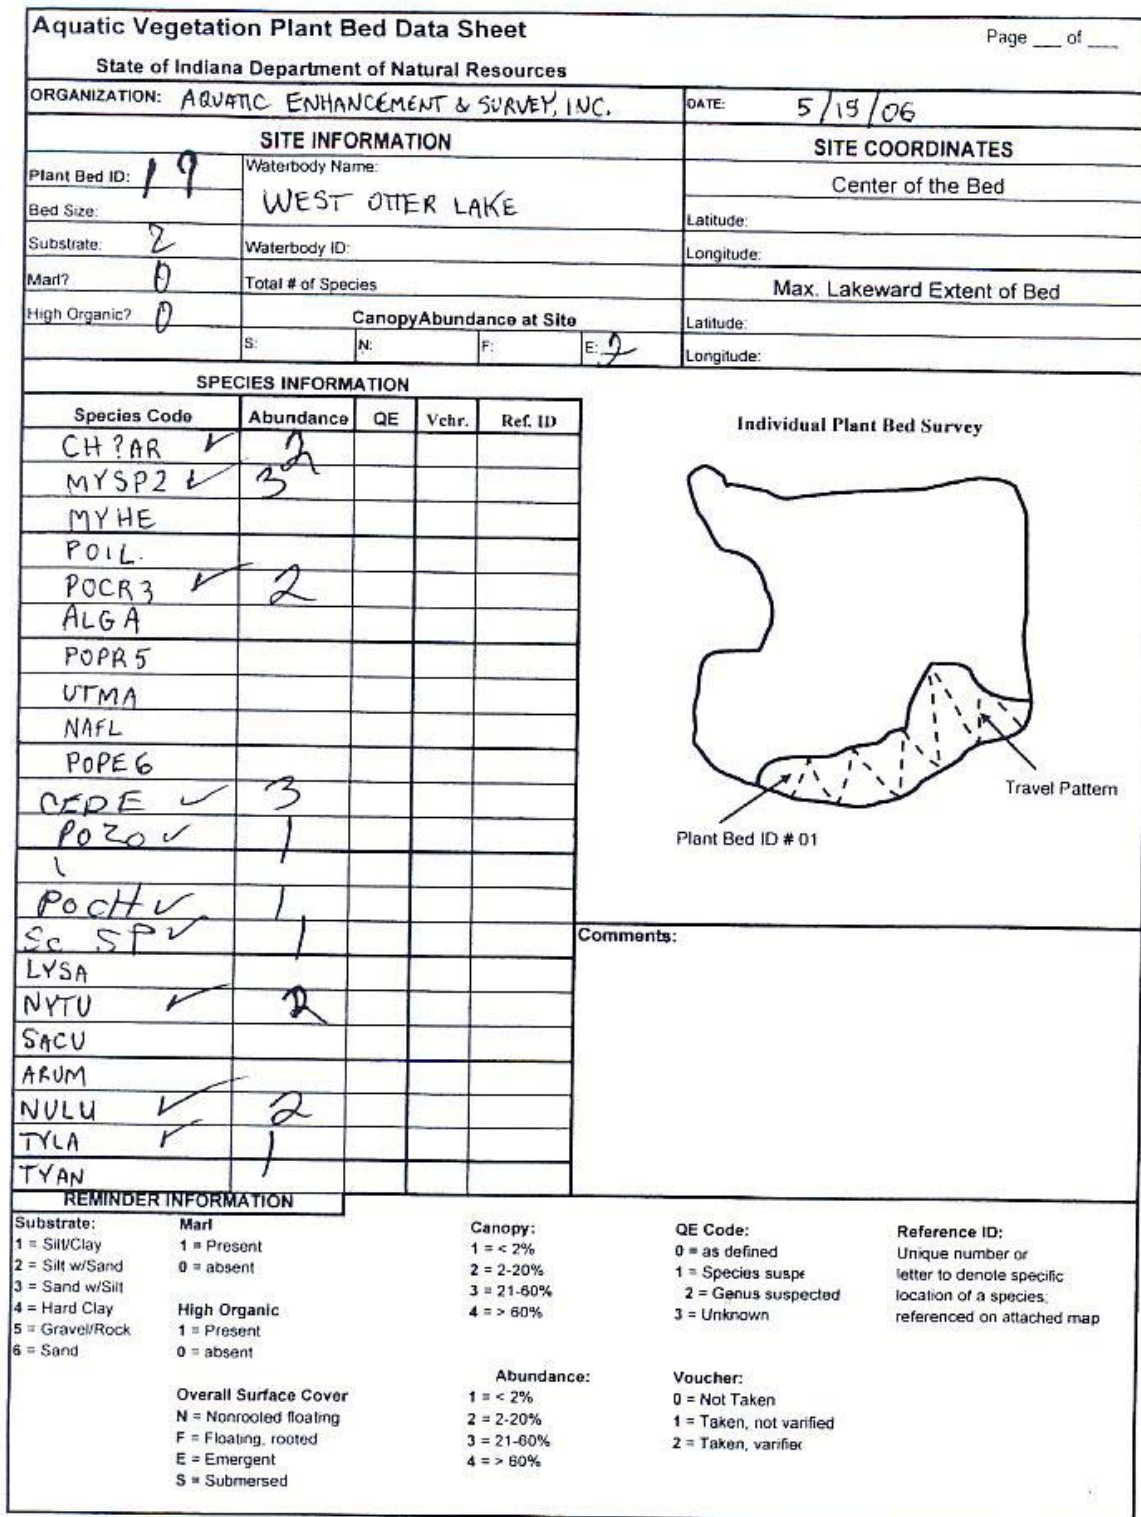 Aquatic Vegetation Plant Bed Data Sheet
Page ___ of ___
State of Indiana Department of Natural Resources
ORGANIZATION: AQUATIC ENHANCEMENT & SURVEY, INC.
DATE: 5/19/06
SITE INFORMATION
SITE COORDINATES
Plant Bed ID: 17
Waterbody Name:
WEST OTTER LAKE
Center of the Bed
Bed Size:
Latitude:
Substrate: 2
Waterbody ID:
Longitude:
Marl? 0
Total # of Species
Max. Lakeward Extent of Bed
High Organic? 0
CanopyAbundance at Site
Latitude:
S: N: F: E: 2
Longitude:
SPECIES INFORMATION
Species Code Abundance QE Vchr. Ref. ID
CH?AR ✓ 2
MYSP2 ✓ 3
MYHE
POIL.
POCR3 ✓ 2
ALGA
POPR5
UTMA
NAFL
POPE6
CEDE ✓ 3
POZO ✓ 1
POCH ✓ 1
Sc SP ✓ 1
LYSA
NYTU ✓ 2
SACU
ARUM
NULU ✓ 2
TYLA ✓ 1
TYAN
Individual Plant Bed Survey
Travel Pattern
Plant Bed ID # 01
Comments:
REMINDER INFORMATION
Substrate:
1 = Silt/Clay
2 = Silt w/Sand
3 = Sand w/Silt
4 = Hard Clay
5 = Gravel/Rock
6 = Sand
Marl
1 = Present
0 = absent
High Organic
1 = Present
0 = absent
Overall Surface Cover
N = Nonrooted floating
F = Floating, rooted
E = Emergent
S = Submersed
Canopy:
1 = < 2%
2 = 2-20%
3 = 21-60%
4 = > 60%
Abundance:
1 = < 2%
2 = 2-20%
3 = 21-60%
4 = > 60%
QE Code:
0 = as defined
1 = Species suspe
2 = Genus suspected
3 = Unknown
Voucher:
0 = Not Taken
1 = Taken, not varified
2 = Taken, varifiec
Reference ID:
Unique number or
letter to denote specific
location of a species;
referenced on attached map